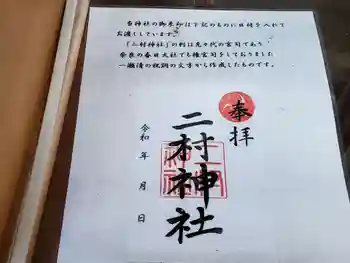 当神社の御朱印は下記のものに日付を入れて
お渡ししています。
「二村神社」の判は先々代の宮司であり
奈良の春日大社でも権宮司をしておりました
一瀬清の祝詞の文字から作成したものです。
奉拝
二村神社
令和 年 月 日